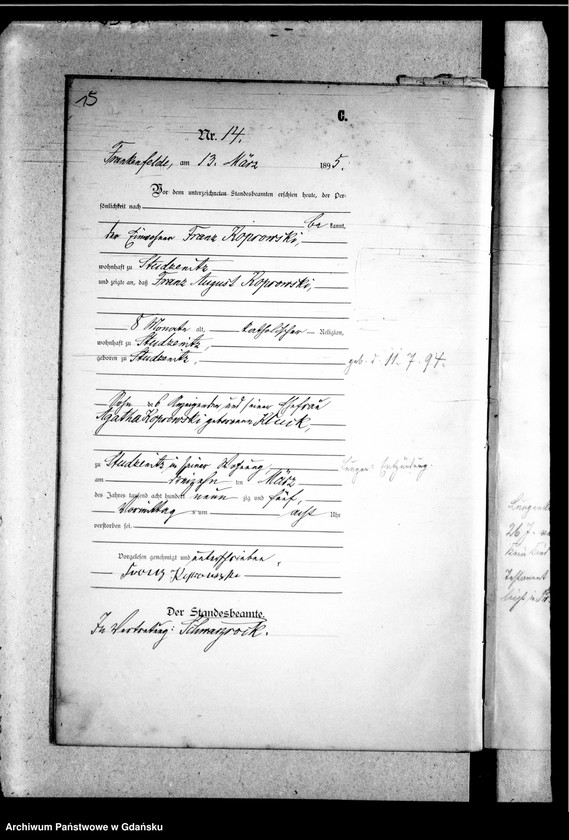 15
C.
Nr. 14.
Frankenfelde, am 13. März 1895.
Vor dem unterzeichneten Standesbeamten erschien heute, der Per-
sönlichkeit nach
be kannt,
der Einwohner Franz Koprowski,
wohnhaft zu Studzenitz
und zeigte an, daß Franz August Koprowski,
8 Monate alt, katholischer Religion,
wohnhaft zu Studzenitz,
geboren zu Studzenitz,
geb. d. 11. 7. 94.
Sohn des Anzeigenden und seiner Ehefrau
Agatha Koprowski geborenen
zu Studzenitz in seiner Wohnung,
am dreizehnten März
des Jahres tausend acht hundert neunzig und fünf,
Vormittag s um acht Uhr
verstorben sei.
Lungen Entzündung
Vorgelesen genehmigt und unterschrieben,
Franz Koprowski
Der Standesbeamte.
In Vertretung: Schwarzrock.
26. 7.
Kein
Testament
Archiwum Państwowe w Gdańsku